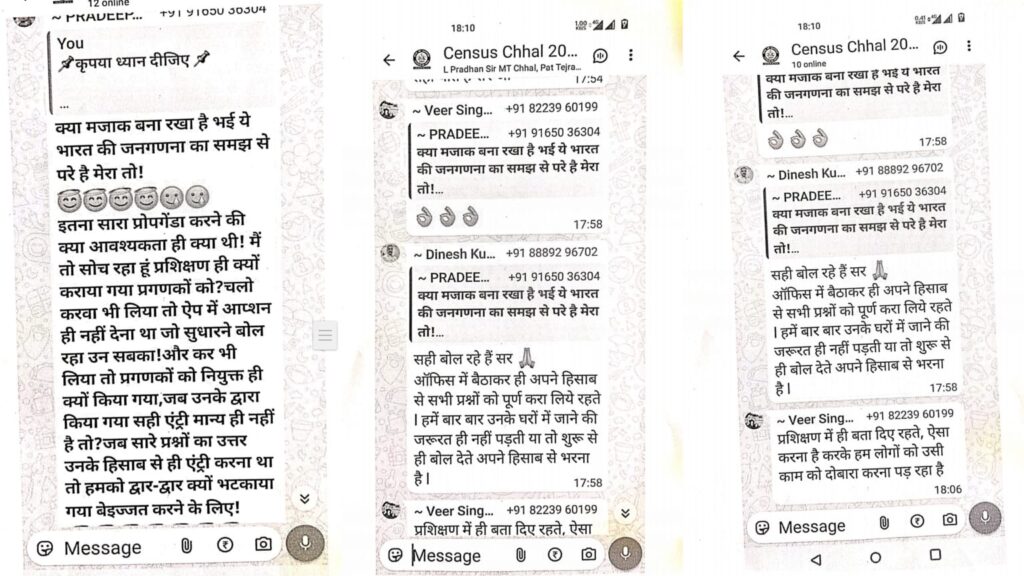 12 online
~ PRADEEP... +91 91650 36304
You
📌कृपया ध्यान दीजिए 📌
...
क्या मजाक बना रखा है भई ये
भारत की जनगणना का समझ से
परे है मेरा तो!
😇😇😇😇🥲🥲
इतना सारा प्रोपगेंडा करने की
क्या आवश्यकता ही क्या थी! मैं
तो सोच रहा हूं प्रशिक्षण ही क्यों
कराया गया प्रगणकों को?चलो
करवा भी लिया तो ऐप में आप्शन
ही नहीं देना था जो सुधारने बोल
रहा उन सबका!और कर भी
लिया तो प्रगणकों को नियुक्त ही
क्यों किया गया,जब उनके द्वारा
किया गया सही एंट्री मान्य ही नहीं
है तो?जब सारे प्रश्नों का उत्तर
उनके हिसाब से ही एंट्री करना था
तो हमको द्वार-द्वार क्यों भटकाया
गया बेइज्जत करने के लिए!
Message
18:10
Census Chhal 20...
L Pradhan Sir MT Chhal, Pat Tejra...
17:54
~ Veer Sing... +91 82239 60199
~ PRADEE... +91 91650 36304
क्या मजाक बना रखा है भई ये भारत
की जनगणना का समझ से परे है मेरा
तो!...
👌👌👌
17:58
~ Dinesh Ku... +91 88892 96702
~ PRADEE... +91 91650 36304
क्या मजाक बना रखा है भई ये भारत
की जनगणना का समझ से परे है मेरा
तो!...
सही बोल रहे हैं सर 🙏
ऑफिस में बैठाकर ही अपने हिसाब
से सभी प्रश्नों को पूर्ण करा लिये रहते
l हमें बार बार उनके घरों में जाने की
जरूरत ही नहीं पड़ती या तो शुरू से
ही बोल देते अपने हिसाब से भरना
है l
17:58
~ Veer Sing... +91 82239 60199
प्रशिक्षण में ही बता दिए रहते, ऐसा
Message
18:10
Census Chhal 20...
10 online
क्या मजाक बना रखा है भई ये भारत
की जनगणना का समझ से परे है मेरा
तो!...
👌👌👌
17:58
~ Dinesh Ku... +91 88892 96702
~ PRADEE... +91 91650 36304
क्या मजाक बना रखा है भई ये भारत
की जनगणना का समझ से परे है मेरा
तो!...
सही बोल रहे हैं सर 🙏
ऑफिस में बैठाकर ही अपने हिसाब
से सभी प्रश्नों को पूर्ण करा लिये रहते
l हमें बार बार उनके घरों में जाने की
जरूरत ही नहीं पड़ती या तो शुरू से
ही बोल देते अपने हिसाब से भरना
है l
17:58
~ Veer Sing... +91 82239 60199
प्रशिक्षण में ही बता दिए रहते, ऐसा
करना है करके हम लोगों को उसी
काम को दोबारा करना पड़ रहा है
18:06
Message